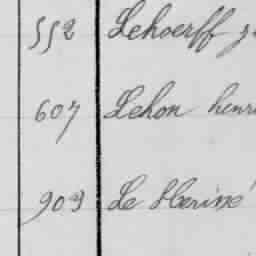 552 Lehoerff
607 Lehon henr
909 Le Herissé